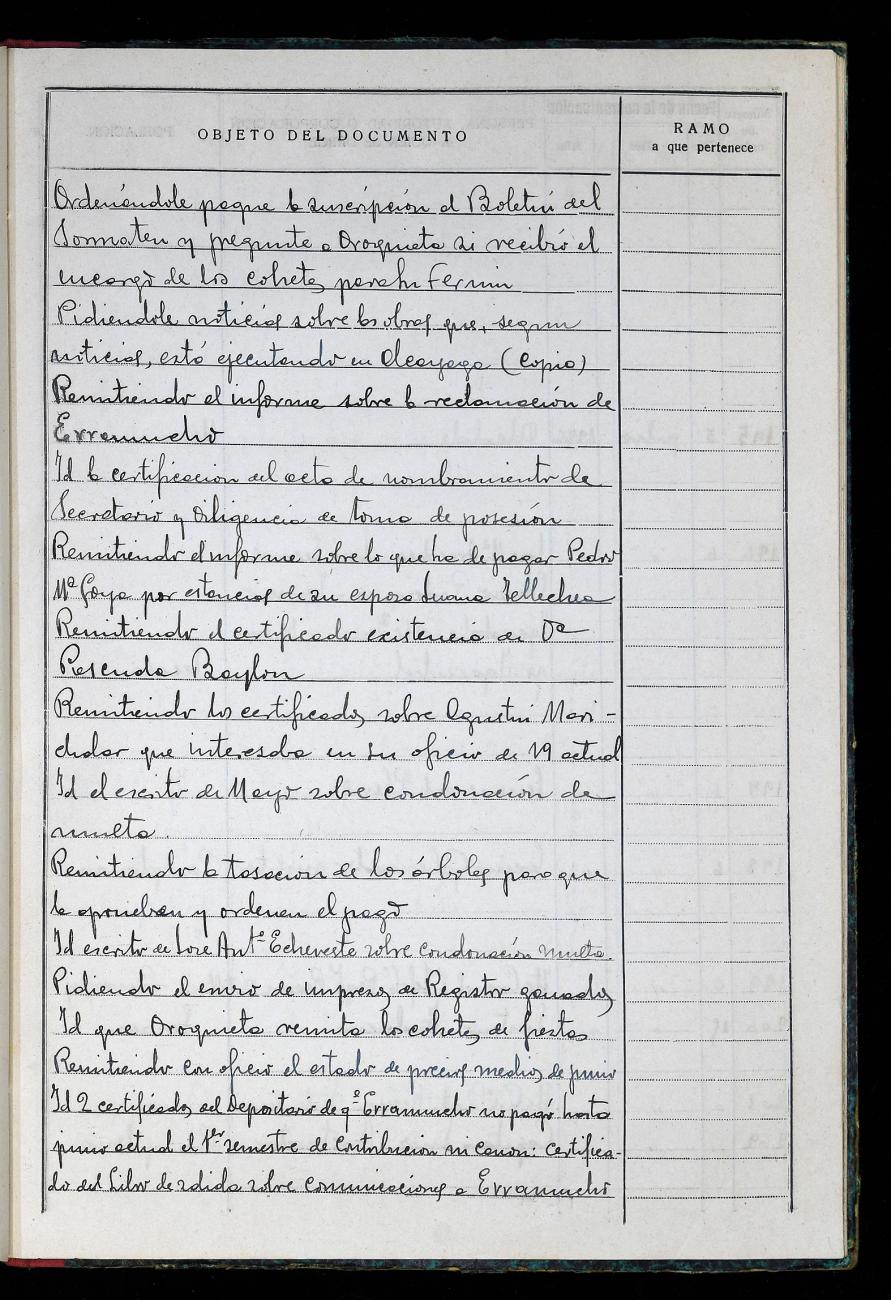 OBJETO DEL DOCUMENTO
RAMO
a que pertenece
Ordenándole pague la suscripción al Boletín del
Somaten y pregunte a Oroquieta si recibió el
encargo de los cohetes para Sn Fermin
Pidiendole noticias sobre las obras que, segun
noticias, está ejecutando en Alcayaga (Copia)
Remitiendo el informe sobre la reclamación de
Erramucho
Id la certificacion del acta de nombramiento de
Secretario y diligencia de toma de posesión
Remitiendo el informe sobre lo que ha de pagar Pedro
Mª Goya por estancias de su esposa Juana Tellechea
Remitiendo el certificado existencia de Dª
Rosenda Baylon
Remitiendo los certificados sobre Agustin Mari-
chalar que interesaba en su oficio de 19 actual
Id el escrito de Mayo sobre condonación de
multa.
Remitiendo la tasacion de los árboles para que
la aprueben y ordenen el pago
Id escrito de Jose Antº Echeveste sobre condonación multa.
Pidiendo el envio de impresos de Registro ganados
Id que Oroquieta remita los cohetes de fiestas
Remitiendo con oficio el estado de precios medios de junio
Id 2 certificados del Depositario de qº Erramucho no pagó hasta
junio actual el 1er semestre de Contribucion ni canon: certifica-
do del Libro de salida sobre comunicaciones a Erramucho